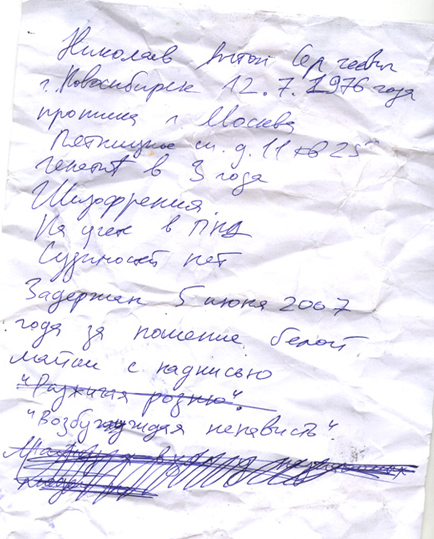 Николаев Антон Сергеевич
г. Новосибирск 12.7.1976 года
г Москва
ш. д. 11 кв 25
гепатит в 3 года
Шизофрения
На учете в ПНД
Судимостей нет
Задержан 5 июня 2007
года за ношение белой
майки с надписью
"Разжигая
"Возбуждая ненависть".